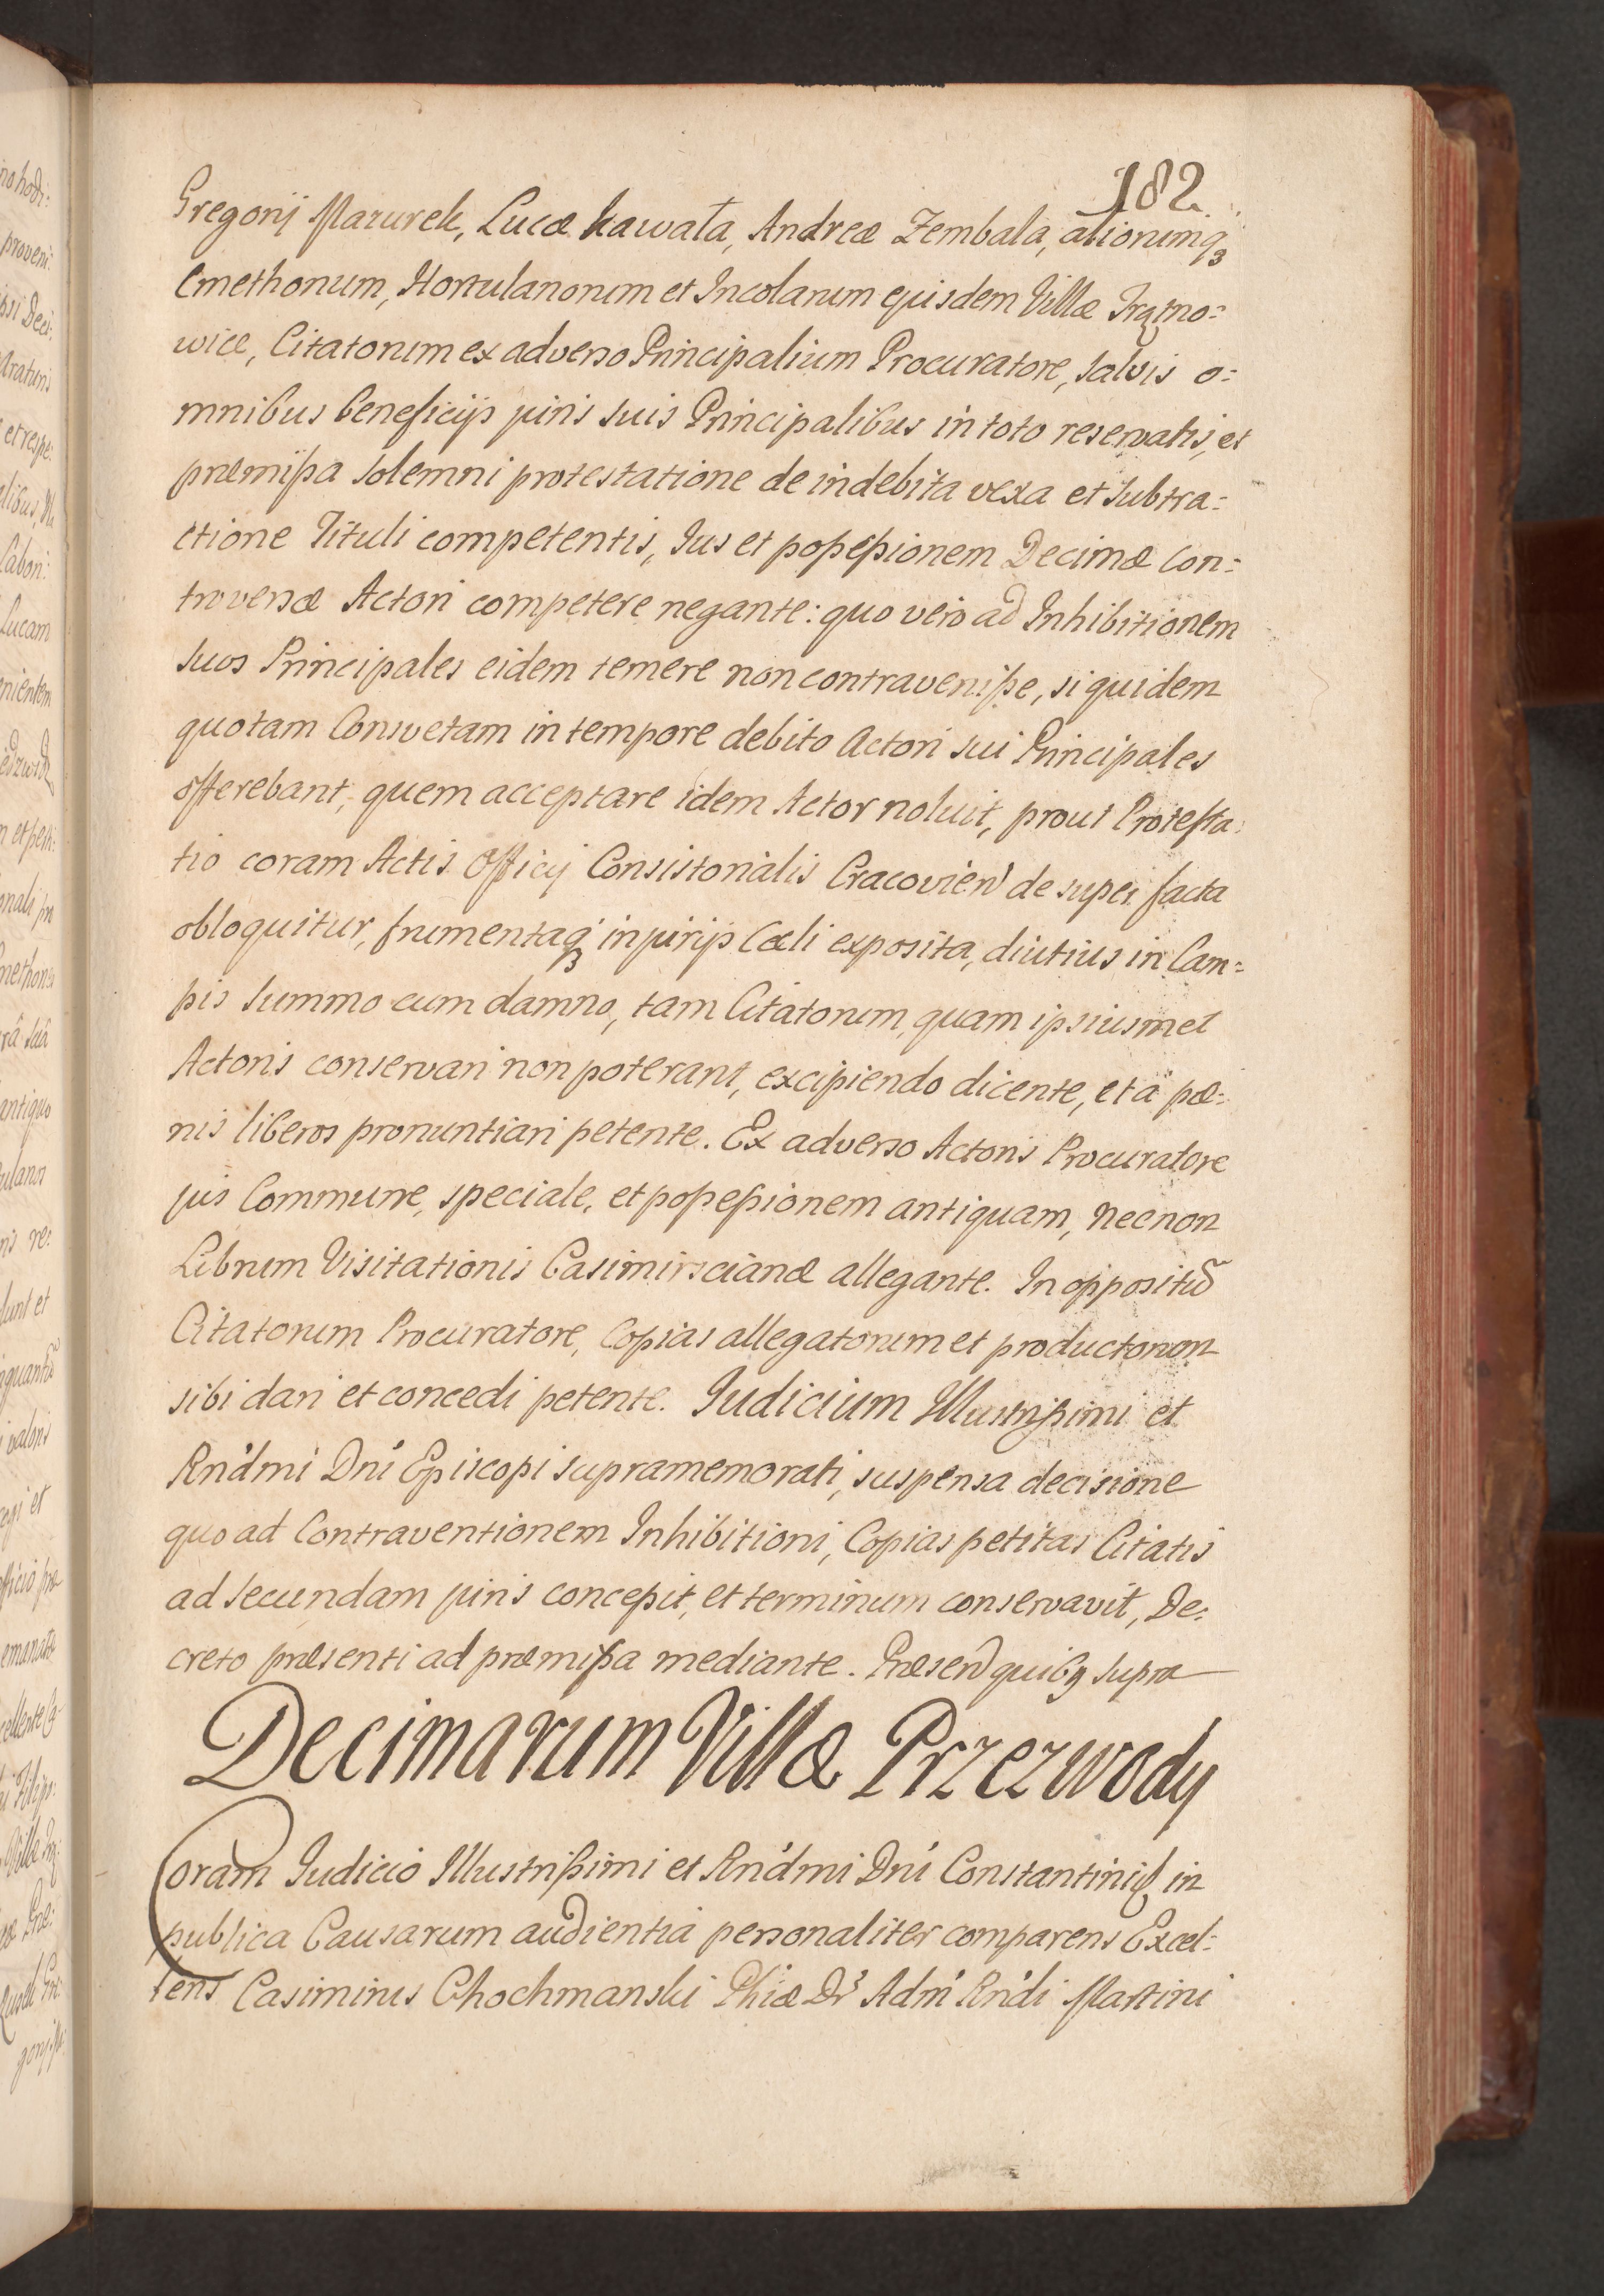 182.
Gregorij Mazurek, Lucæ kawata, Andreæ Zembala, aliorumq3
Cmethonum, Hortulanorum et Incolarum ejusdem Villæ
wice, Citatorum ex adverso Principalium Procuratore, salvis o=
mnibus beneficijs juris suis Principalibus in toto reservatis, et
præmißa solemni protestatione de indebita vexa et subtra=
ctione Tituli competentis, Ius et poßeßionem Decimæ con=
troversæ Actori competere negante: quo vero ad Inhibitionem
suos Principales eidem temere non contraveniße, siquidem
quotam Consvetam in tempore debito Actori sui Principales
offerebant, quem acceptare idem Actor noluit, prout Protesta=
tio coram Actis Officij Consistorialis Cracovien de super facta
obloquitur, frumentaq3 injurijs Cæli exposita, diutius in Cam=
pis summo cum damno, tam Citatorum, quam ipsiusmet
Actoris conservari non poterant, excipiendo dicente, et à pæ=
nis liberos pronuntiari petente. Ex adverso Actoris Procuratore
jus Commune, speciale, et poßeßionem antiquam, necnon
Librum Visitationis Casimirscianæ allegante. In oppositũ
Citatorum Procuratore, Copias allegatorum et productorum
sibi dari et concedi petente. Iudicium Illustrißimi et
Rńdmi Dńi Episcopi supramemorati, suspensa decisione
quo ad Contraventionem Inhibitioni, Copias petitas Citatis
ad secundam juris conceßit, et terminum conservavit, De=
creto præsenti ad præmißa mediante. Præsen quib9 supra
Decimarum Villæ Przezwody
Coram Iudicio Illustrißimi et Rńdmi Dńi Constantini in
publica Causarum audientia personaliter comparens Excel=
lens Casimirus Chochmanski Phiæ Dr Adm Rńdi Martini